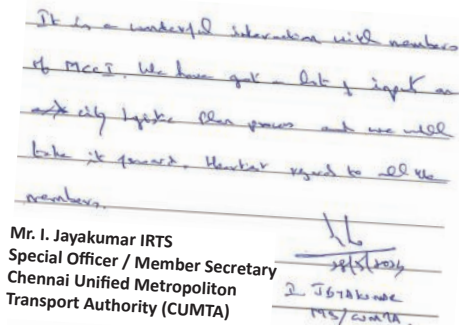 It is a wonderful interaction with members
of MCCI. We have got a lot of input on
city logistic plan process and we will
take it forward. Heartiest regard to all the
members.
28/5/2024
I. JAYAKUMAR
MS/CUMTA
Mr. I. Jayakumar IRTS
Special Officer / Member Secretary
Chennai Unified Metropoliton
Transport Authority (CUMTA)